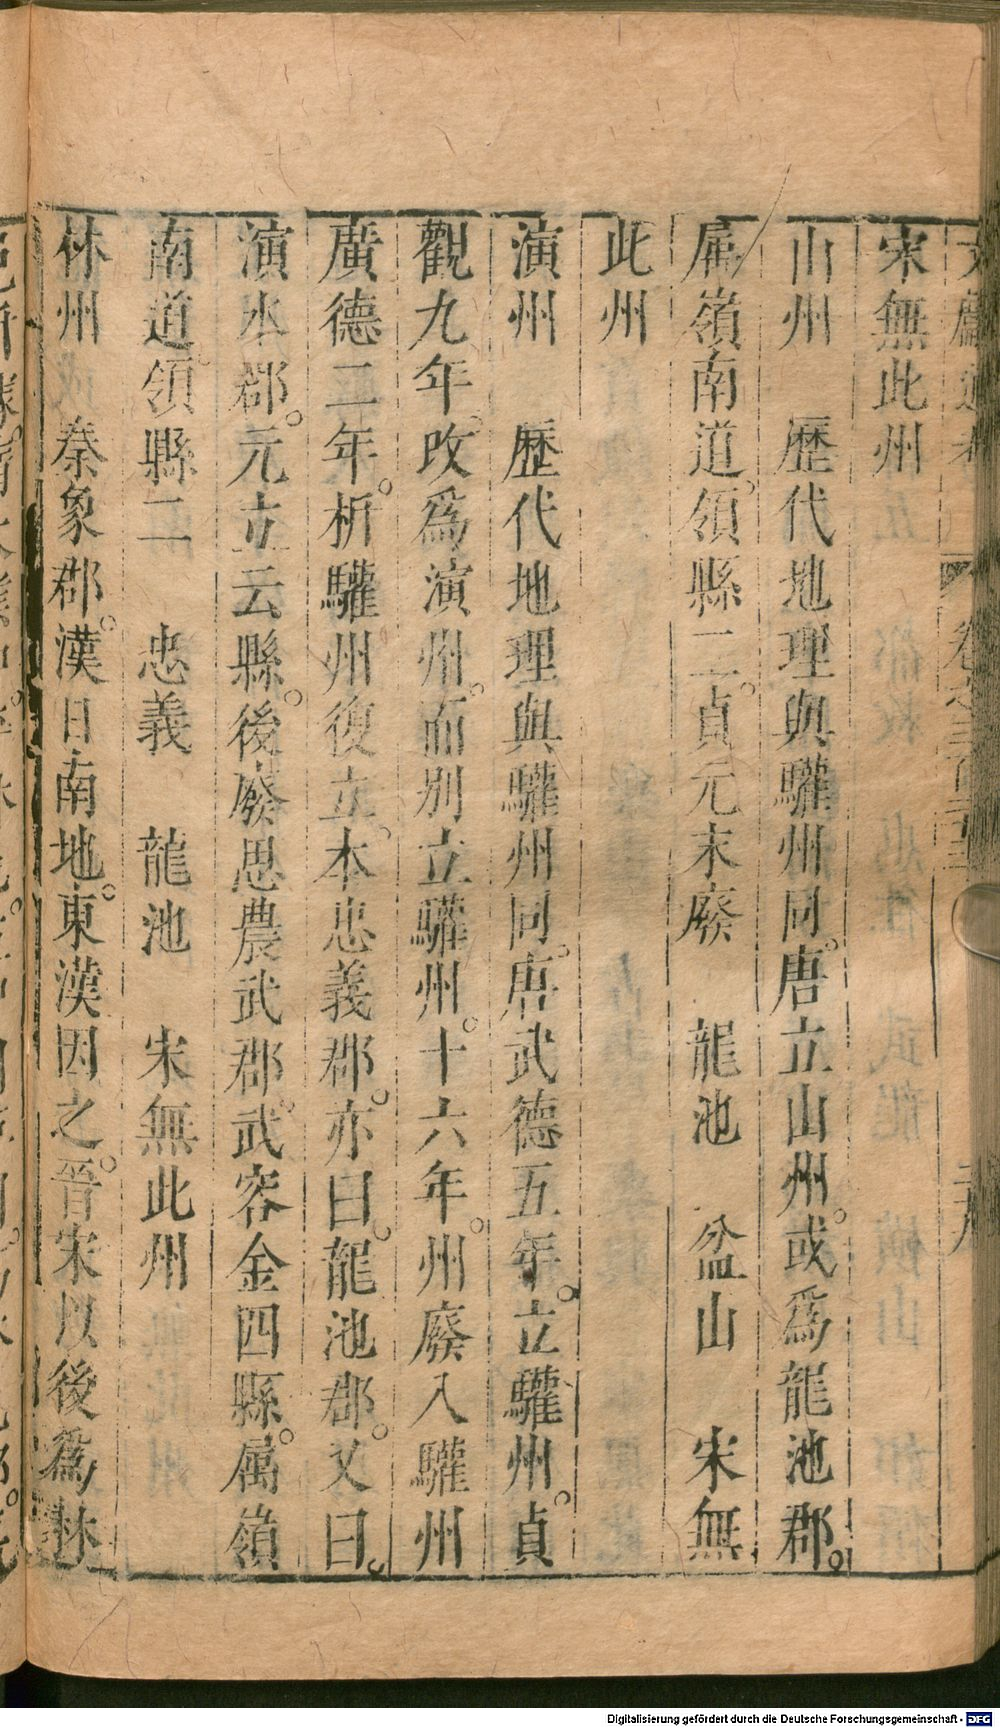 宋無此州
山州 歷代地理與驩州同。唐立山州。或爲龍池郡。
屬嶺南道。領縣二。貞元末廢 龍池 盆山 宋無
此州
演州 歷代地理與驩州同。唐武德五年。立驩州。貞
觀九年。改爲演州。而別立驩州。十六年。州廢入驩州
廣德二年。析驩州復立。本忠義郡。亦曰。龍池郡。又曰。
演水郡。元立云縣。後廢思農武郡武容金四縣。属嶺
南道。領縣二 忠義 龍池 宋無此州
林州 秦象郡。漢日南地。東漢因之。晉宋以後爲林
Digitalisierung gefördert durch die Deutsche Forschungsgemeinschaft - DFG